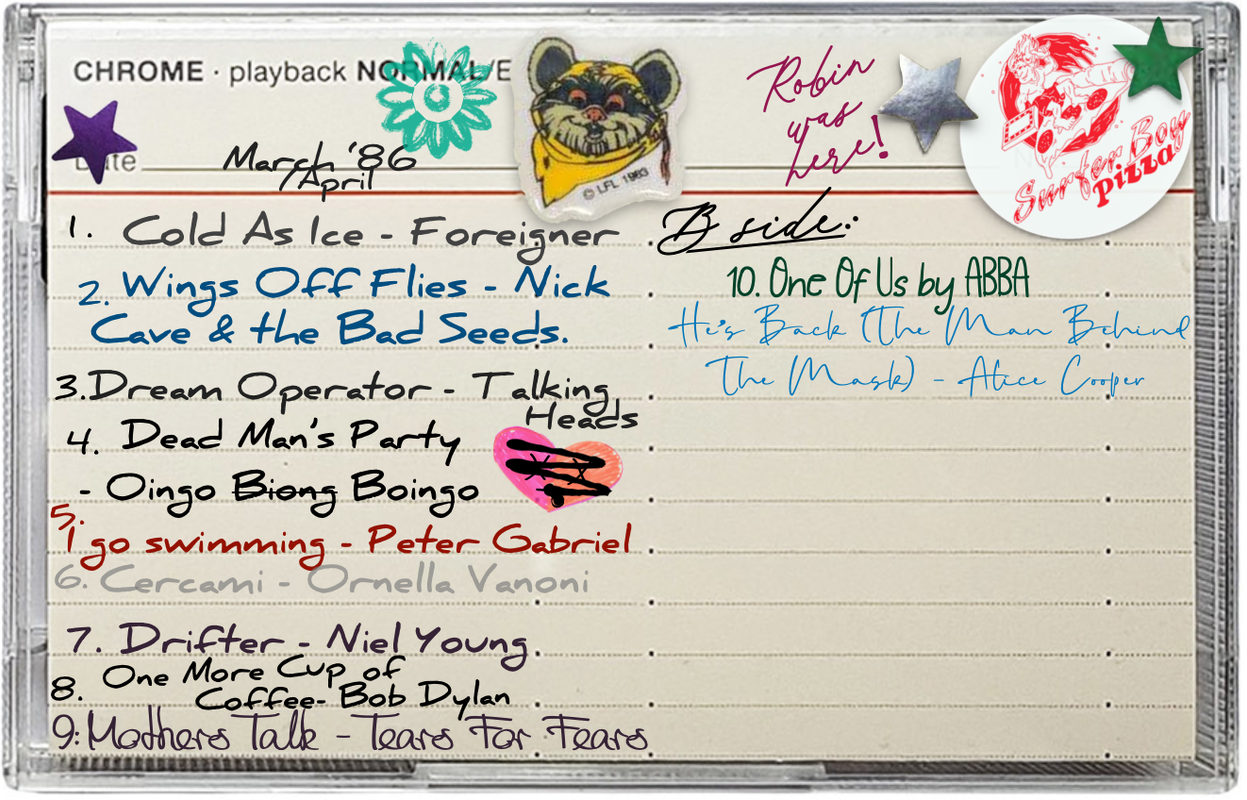 CHROME · playback NORMAL/E
Date
March '86
/April
© LFL 1983
Robin
was
here!
Surfer Boy
pizza
1. Cold As Ice - Foreigner
2. Wings Off Flies - Nick
Cave & the Bad Seeds.
3. Dream Operator - Talking
Heads
4. Dead Man's Party
- Oingo Biong Boingo
5.
I go swimming - Peter Gabriel
6. Cercami - Ornella Vanoni
7. Drifter - Niel Young
8. One More Cup of
Coffee- Bob Dylan
9: Mothers Talk - Tears For Fears
B side:
10. One Of Us by ABBA
He's Back (The Man Behind
The Mask) - Alice Cooper